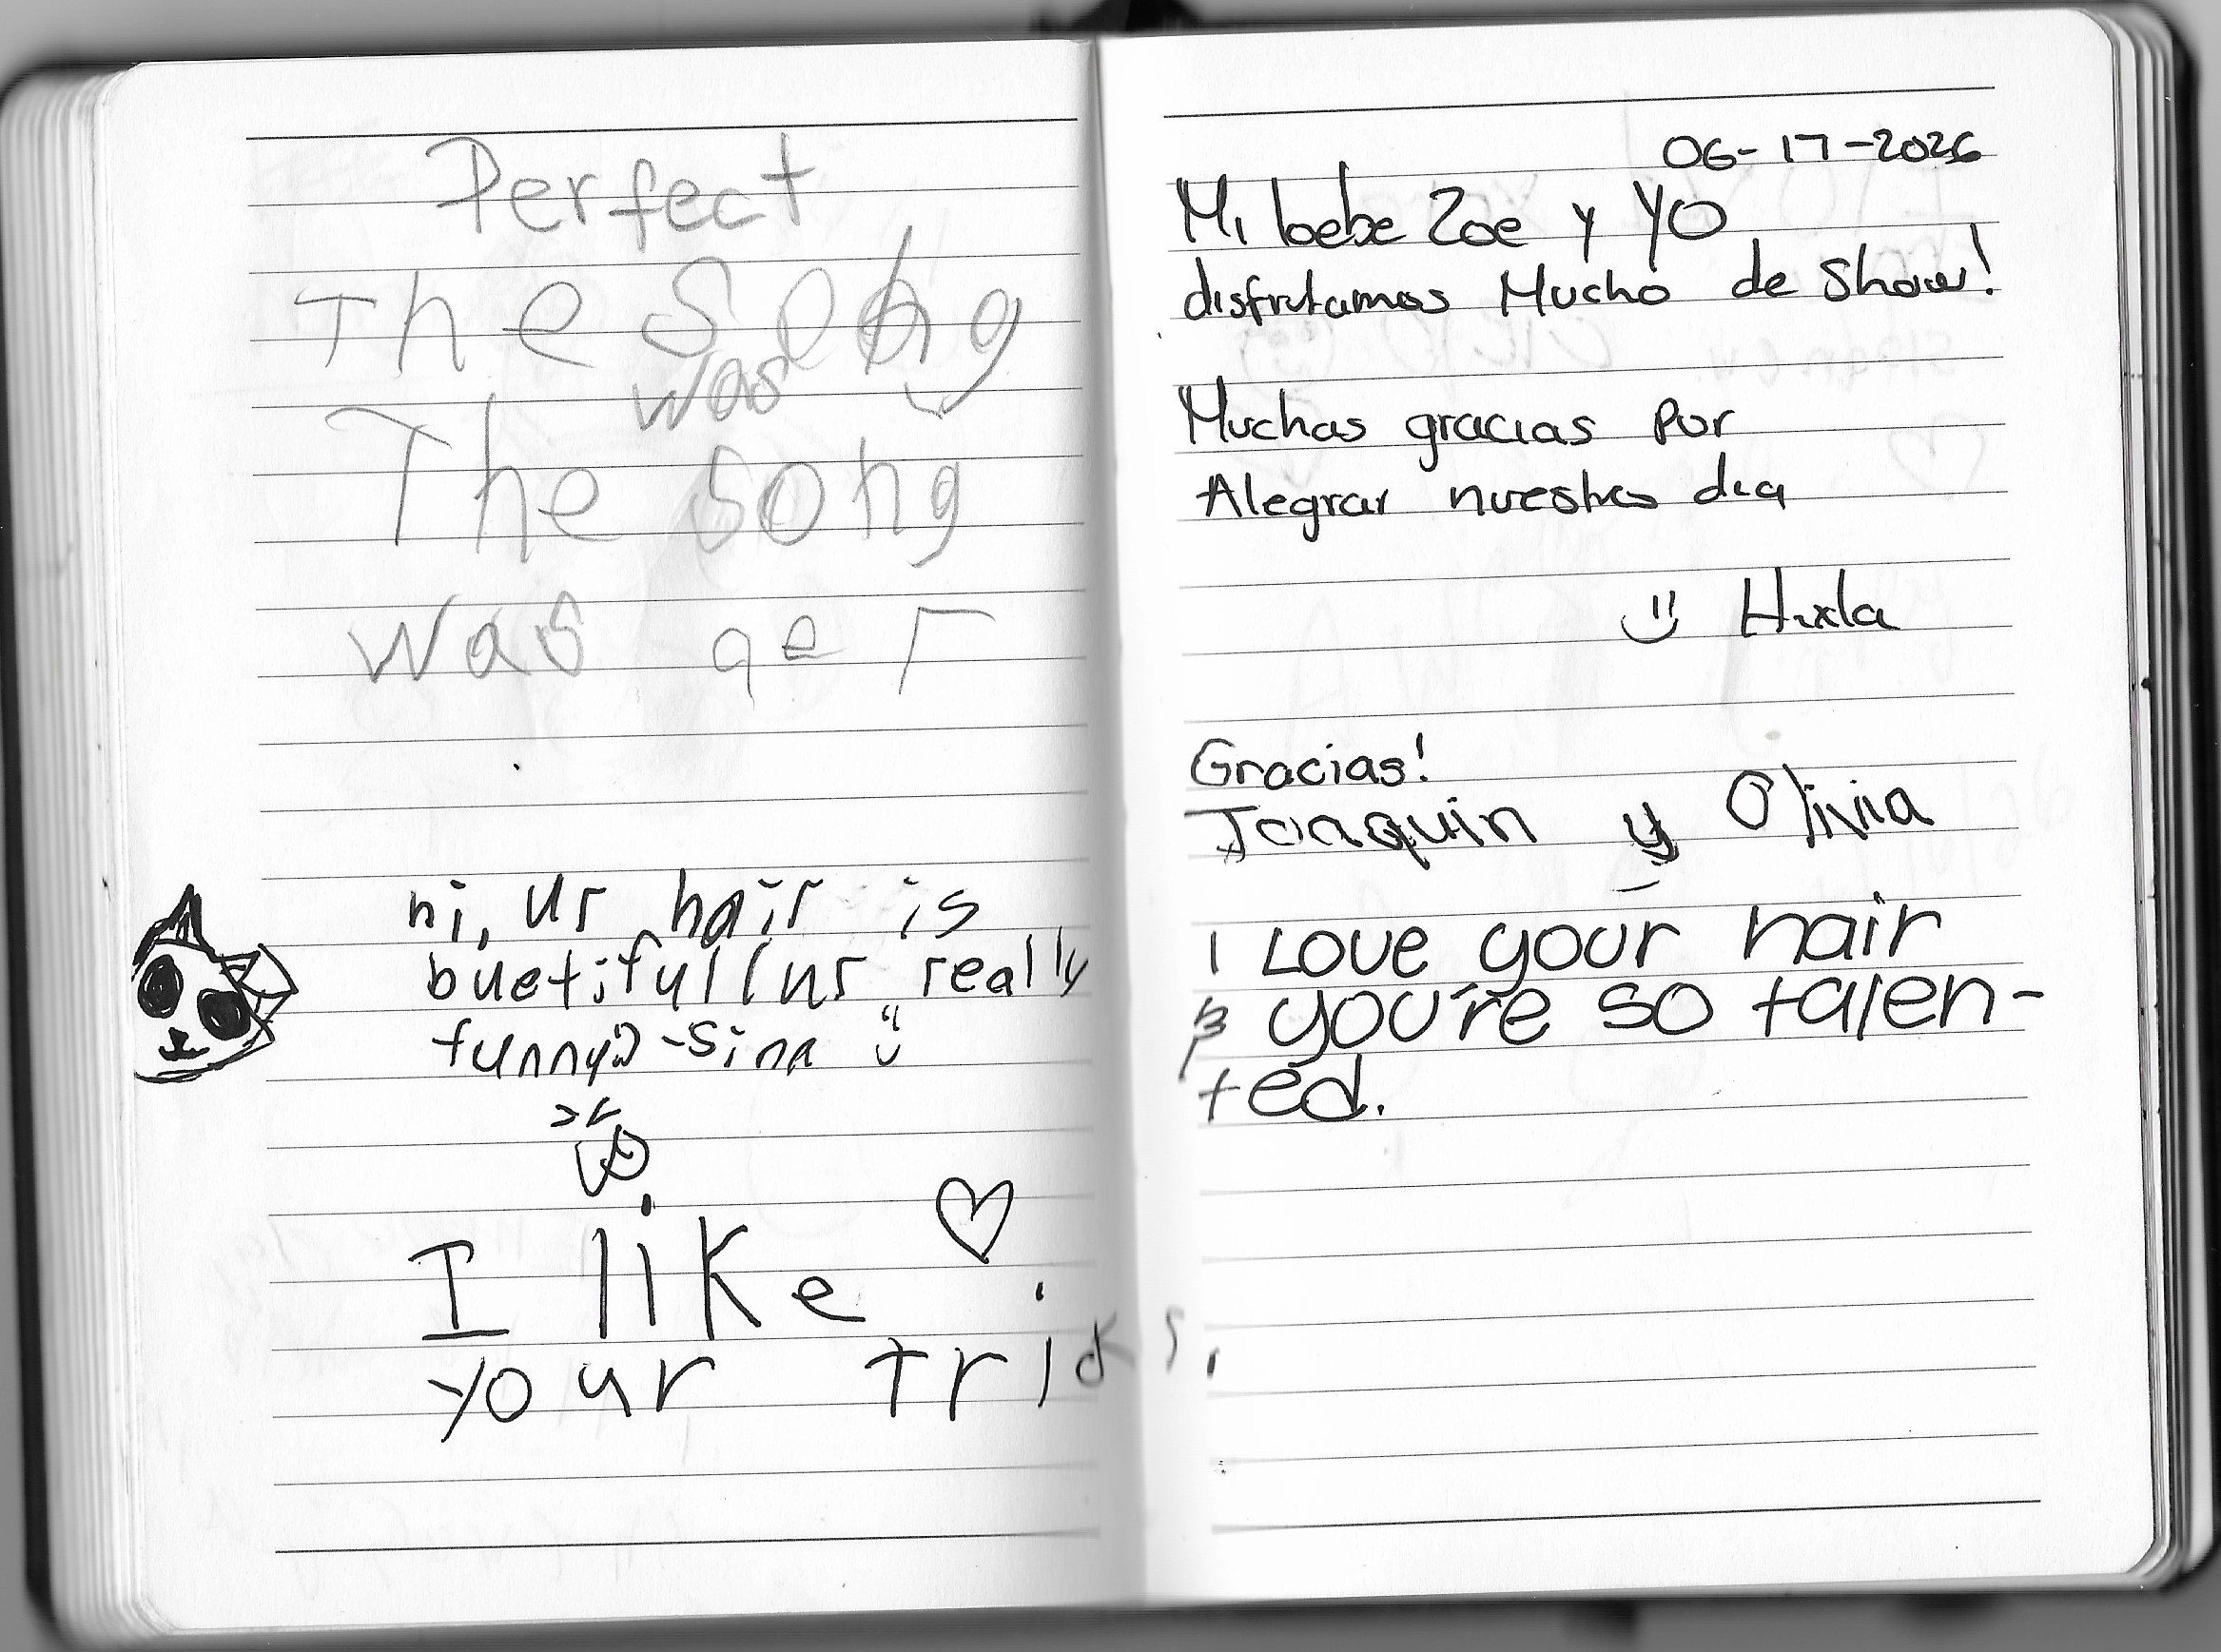 Perfect
The Song
was
The song
was ger
hi, ur hair is
buetiful (ur really
funny) -Sina
I like
your tricks.
06-17-2026
Mi bebe Zoe y yo
disfrutamos Mucho de Show!
Muchas gracias por
Alegrar nuestro dia
Gracias!
Joaquin y Olivia
I Love your hair
you're so talen-
ted.